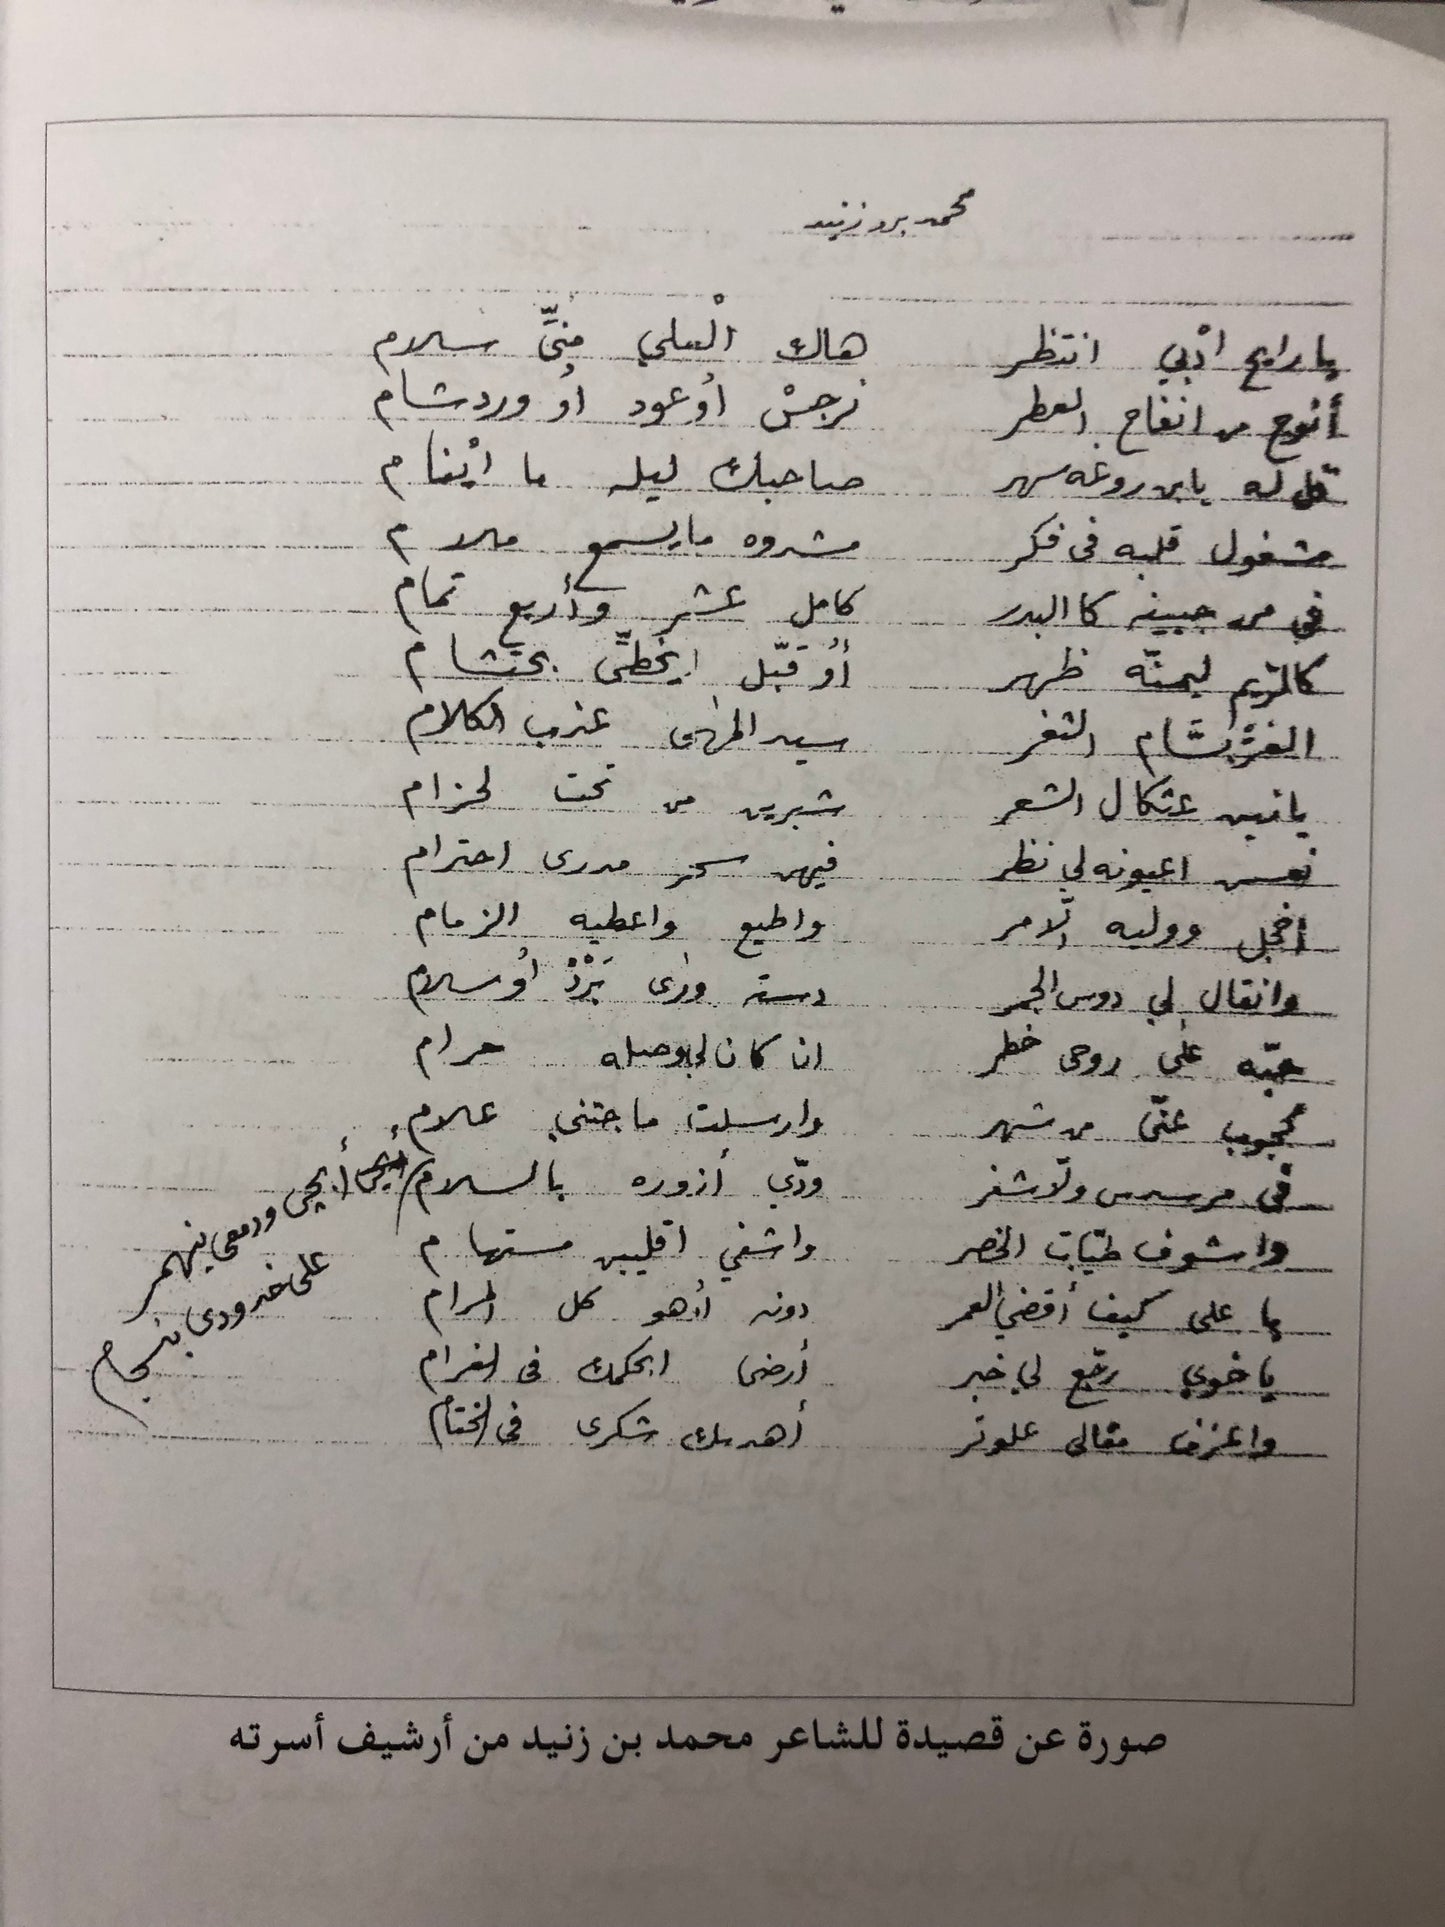 محمد بن زنيد
يا رايح ادْبي انتظر هاك الْعلي مُنِّيّ سلام
أنوح من انفاح العطر نرجسْ اُوعود اُو ورد شام
قل له يا بن روغه سهر صاحبك ليله ما ايْنام
مشغول قلبه في فكر مشدوه ما يسمع ملام
في من جبينه كا البدر كامل عشر وأربع تمام
كالرّيم ليمنّه ظهر أوْ قبّل ايخطّى بحتشام
الغرّ بسّام الثغر سيد المهى عذب الكلام
يا نين عثكال الشعر شبرين من تحت لحزام
نعس اعيونه لي نظر فيهن سحر مدرى احترام
اخجل ووليه الّامر واطيع واعطيه الزمام
وانقال لي دوس الجمر دسته ورى بَرْدْ اُو سلام
حبّه على روحى خطر ان كان لي بوصله حرام
محجوب عنّي من شهر وارسلت ما جتني علام
في مرسدس ولّا شفر ودّي أزوره بالسلام
أبجي أبجي ودمعي ينهمر
على خدودي بنسجام
واشوف طيّات الخصر واشفي اقليبن مستهام
يا علي كيف أقضي العمر دونه اُهو كل المرام
يا خوي رجّع لي خبر أرضى ابحكمك في لغرام
واعزف مقالى علوتر أهديك شكرى في الختام
صورة عن قصيدة للشاعر محمد بن زنيد من أرشيف أسرته